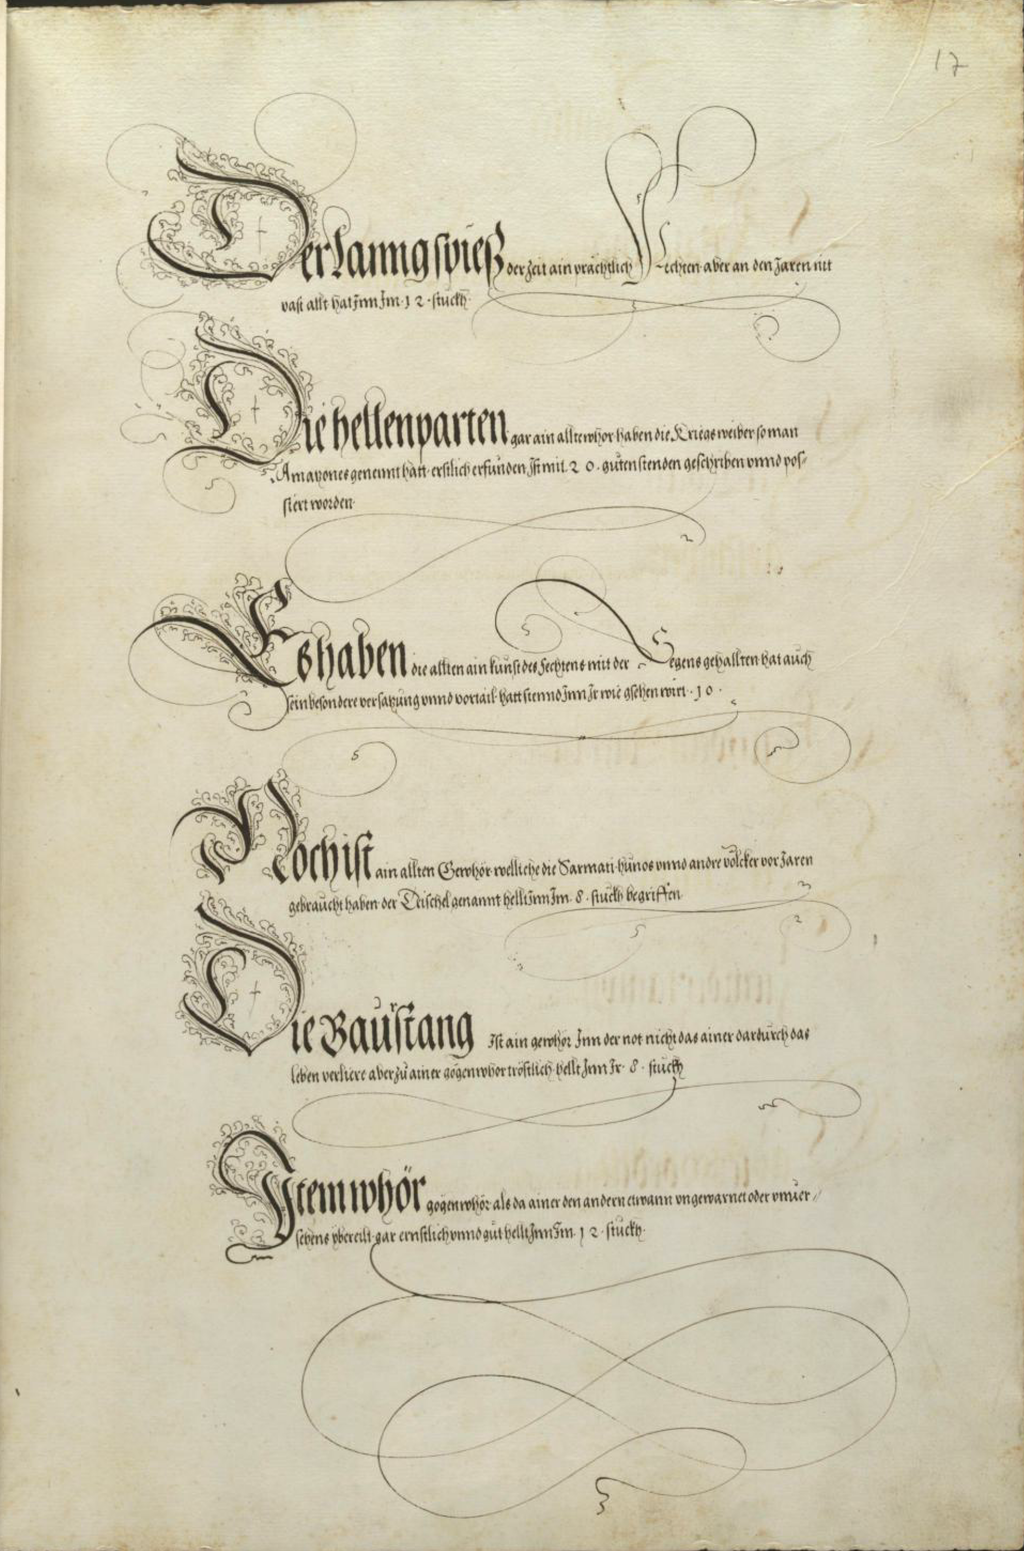 17
Der Lanngspieß der zeit ain prächtlich Fechten aber an den Jaren nit
vast allt hat Inn Im · 12 · stuckh
Die hellenparten gar ain allte whör haben die Kriegs weiber so man
Amazones genennt hatt erstlich erfunden Ist mit · 20 · guten stenden geschriben vnnd pos-
siert worden
Es haben die allten ain kunst des Fechtens mit der Segens gehallten hat auch
sein besondere versatzung vnnd vortail hatt stennd Inn Ir wie gsehen wirt · 10 ·
Noch ist ain allten Gewhör welliche die Sarmati hünos vnnd andre völcker vor Jaren
gebraucht haben der Drischel genannt hellt Inn Im · 8 · stuckh begriffen
Die Baurstang Ist ain gewhör Inn der not nicht das ainer dardurch das
leben verliere aber zu ainer gögenwhör tröstlich hellt Inn Ir · 8 · stuckh
Item whör gögen whör als da ainer den andern etwann vngewarnet oder vnuer-
sehens ybereilt gar ernstlich vnnd gut hellt Inn Im · 12 · stuckh